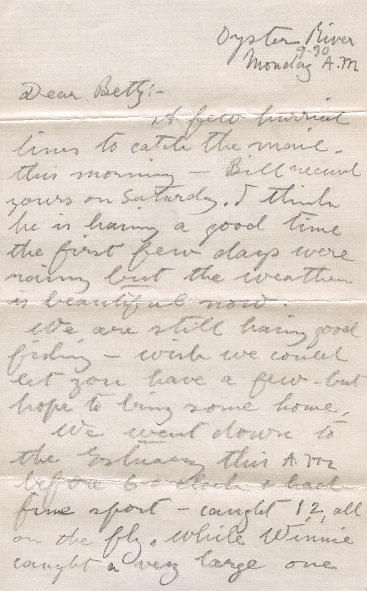 Oyster River
9-30
Monday A.M
Dear Betty:-
A few hurried
lines to catch the mail.
this morning - Bill received
yours on Saturday. I think
he is having a good time
the first few days were
rainy but the weather
is beautiful now.
We are still having good
fishing - wish we could
let you have a few - but
hope to bring some home.
We went down to
the Estuary this A.M
before 6 o'clock & had
fine sport - caught 12, all
on the fly, while Winnie
caught a very large one